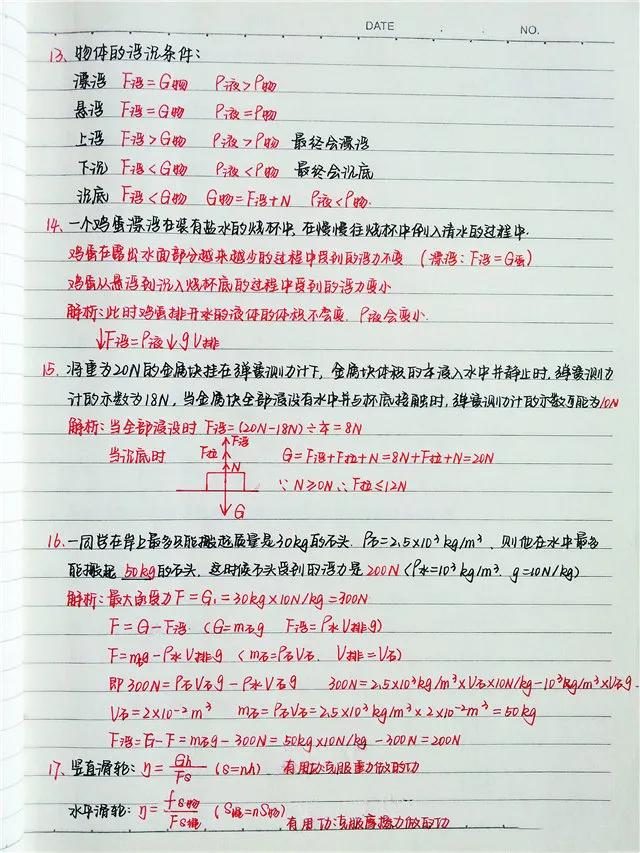 DATE
NO.
13、物体的浮沉条件：
漂浮 F浮=G物 ρ液>ρ物
悬浮 F浮=G物 ρ液=ρ物
上浮 F浮>G物 ρ液>ρ物 最终会漂浮
下沉 F浮<G物 ρ液<ρ物 最终会沉底
沉底 F浮<G物 G物=F浮+N ρ液<ρ物
14、一个鸡蛋漂浮在装有盐水的烧杯中,在慢慢往烧杯中倒入清水的过程中.
鸡蛋在露出水面部分越来越少的过程中受到的浮力不变 (漂浮：F浮=G蛋)
鸡蛋从悬浮到沉入烧杯底的过程中受到的浮力变小
解析：此时鸡蛋排开水的液体的体积不会变. ρ液会变小.
↓F浮=ρ液↓gV排
15、将重为20N的金属块挂在弹簧测力计下,金属块体积的 浸入水中并静止时,弹簧测力
计的示数为18N,当金属块全部浸没有水中并与杯底接触时,弹簧测力计的示数可能为10N
解析：当全部浸没时 F浮=(20N-18N)÷ =8N
当沉底时
F浮
F拉
N
G
G=F浮+F拉+N=8N+F拉+N=20N
∵N≥0N∴F拉≤12N
16、一同学在岸上最多只能搬起质量是30kg的石头. ρ石=2.5×10³kg/m³、则他在水中最多
能搬起 50kg的石头. 这时候石头受到的浮力是200N(ρ水=10³kg/m³. g=10N/kg)
解析：最大承受力F=G₁=30kg×10N/kg=300N
F=G-F浮 (G=m石g F浮=ρ水V排g)
F=m石g-ρ水V排g (m石=ρ石V石. V排=V石)
即300N=ρ石V石g-ρ水V石g 300N=2.5×10³kg/m³×V石×10N/kg-10³kg/m³×V石g
V石=2×10⁻²m³ m石=ρ石V石=2.5×10³kg/m³×2×10⁻²m³=50kg
F浮=G-F=m石g-300N=50kg×10N/kg-300N=200N
17、竖直滑轮：η=Gh/Fs (s=nh) 有用功克服重力做的功
水平滑轮：η=fs物/Fs绳 (S绳=nS物) 有用功克服摩擦力做的功